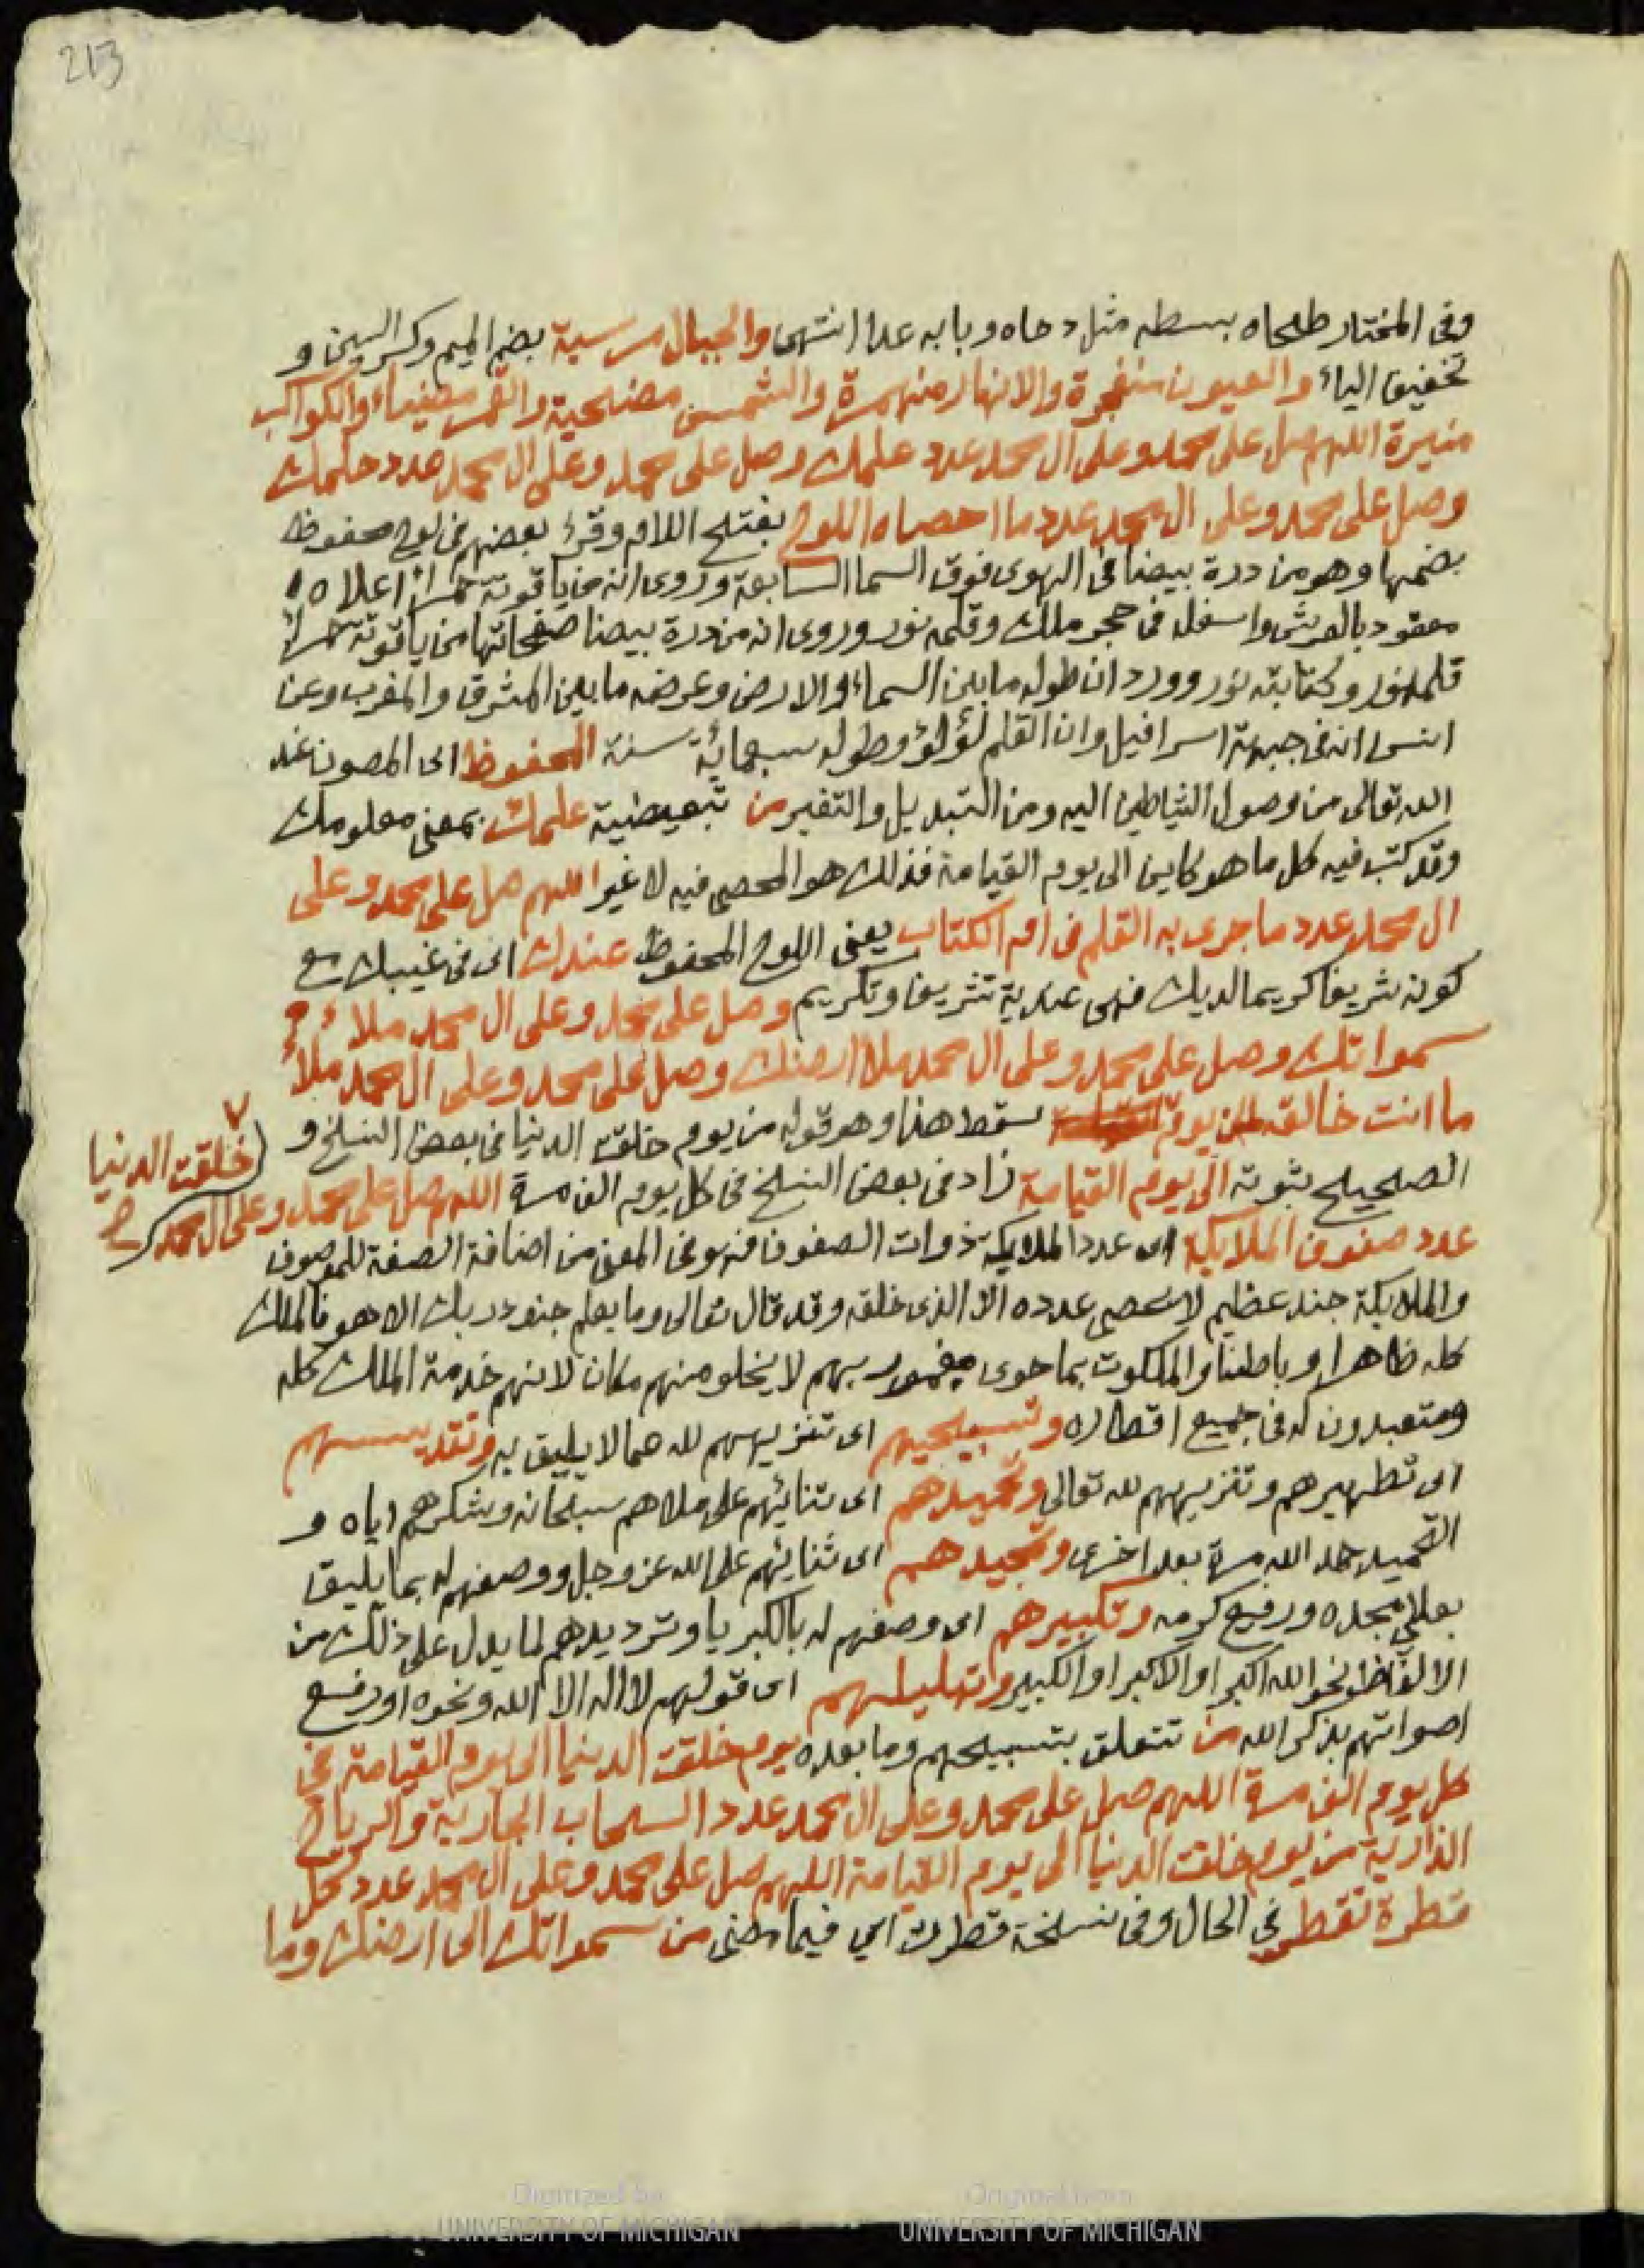 213
وفى المختار طحاه بسطه مثل دحاه وبابه عدا انتهى والجبال مرسية بضم الميم وكسر السين و
تخفيف الياء والعيون منفجرة والانهار منهمرة والشمس مضحية والقمر مضيئا والكواكب
منيرة اللهم صل على محمد وعلى ال محمد عدد علمك وصل على محمد وعلى ال محمد عدد حلمك
وصل على محمد وعلى ال محمد عدد ما احصاه اللوح بفتح اللام وقرئ بعضهم فى لوح محفوظ
بضمها وهو من درة بيضا فى الهوى فوق السما السابعة وروى انه من ياقوتة حمرأ اعلاه
معقود بالعرش واسفله فى حجر ملك وقلمه نور وروى انه من درة بيضا صفحاتها من ياقوتة حمرأ
قلمه نور وكتابته نور وورد ان طوله ما بين السماء والارض وعرضه ما بين المشرق والمغرب وعن
انس انه فى جبهة اسرافيل وان القلم لؤلؤ وطوله سبعمائة سنة المحفوظ اى المصون عند
الله تعالى من وصول الشياطين اليه ومن التبديل والتغير من تبعيضية علمك بمعنى معلومك
وقد كتب فيه كل ما هو كاين الى يوم القيامة فذلك هو المحصى فيه لا غير اللهم صل على محمد وعلى
ال محمد عدد ما جرى به القلم فى ام الكتاب يعنى اللوح المحفوظ عندك اى فى غيبك مع
كونه شريفا كريما لديك فهى عندية تشريف وتكريم وصل على محمد وعلى ال محمد ملاء
سمواتك وصل على محمد وعلى ال محمد ملا ارضك وصل على محمد وعلى ال محمد ملأ
ما انت خالقه من يوم سقط هذا وهو قوله من يوم خلقت الدنيا فى بعض النسخ و
خلقت الدنيا
الصحيح ثبوته الى يوم القيامة زاد فى بعض النسخ فى كل يوم الف مرة اللهم صل على محمد وعلى ال محمد
عدد صفوف الملايكة اى عدد الملايكة ذوات الصفوف فهو فى المعنى من اضافة الصفة للموصوف
والملايكة جند عظيم لا يحصى عدده الا الذى خلقه وقد قال تعالى وما يعلم جنود ربك الا هو فالملك
كله ظاهرا وباطنا والملكوت بما حوى مغمور بهم لا يخلو منهم مكان لانهم خدمة الملك كله
ومتعبدون له فى جميع اقطاره وتسبيحهم اى تنزيههم لله عما لا يليق به وتقديسهم
اى تطهيرهم وتنزيههم لله تعالى وتحميدهم اى ثنائهم على ملاهم سبحانه وشكرهم اياه و
التحميد حمد الله مرة بعد اخرى وتمجيدهم اى ثنائهم على الله عز وجل ووصفهم له بما يليق
بعلى مجده ورفيع كرمه وتكبيرهم اى وصفهم له بالكبريا وترديدهم لما يدل على ذلك من
الالفاظ نحو الله اكبر او الاكبر او الكبير وتهليلهم اى قولهم لا اله الا الله ونحوه او رفع
اصواتهم بذكر الله من تتعلق بتسبيحهم وما بعده يوم خلقت الدنيا الى يوم القيامة فى
كل يوم الف مرة اللهم صل على محمد وعلى ال محمد عدد السحاب الجارية والرياح
الذارية من يوم خلقت الدنيا الى يوم القيامة اللهم صل على محمد وعلى ال محمد عدد كل
قطرة تقطر فى الحال وفى نسخة قطرت اي فيما مضى من سمواتك الى ارضك وما
Digitized by UNIVERSITY OF MICHIGAN
Original from UNIVERSITY OF MICHIGAN